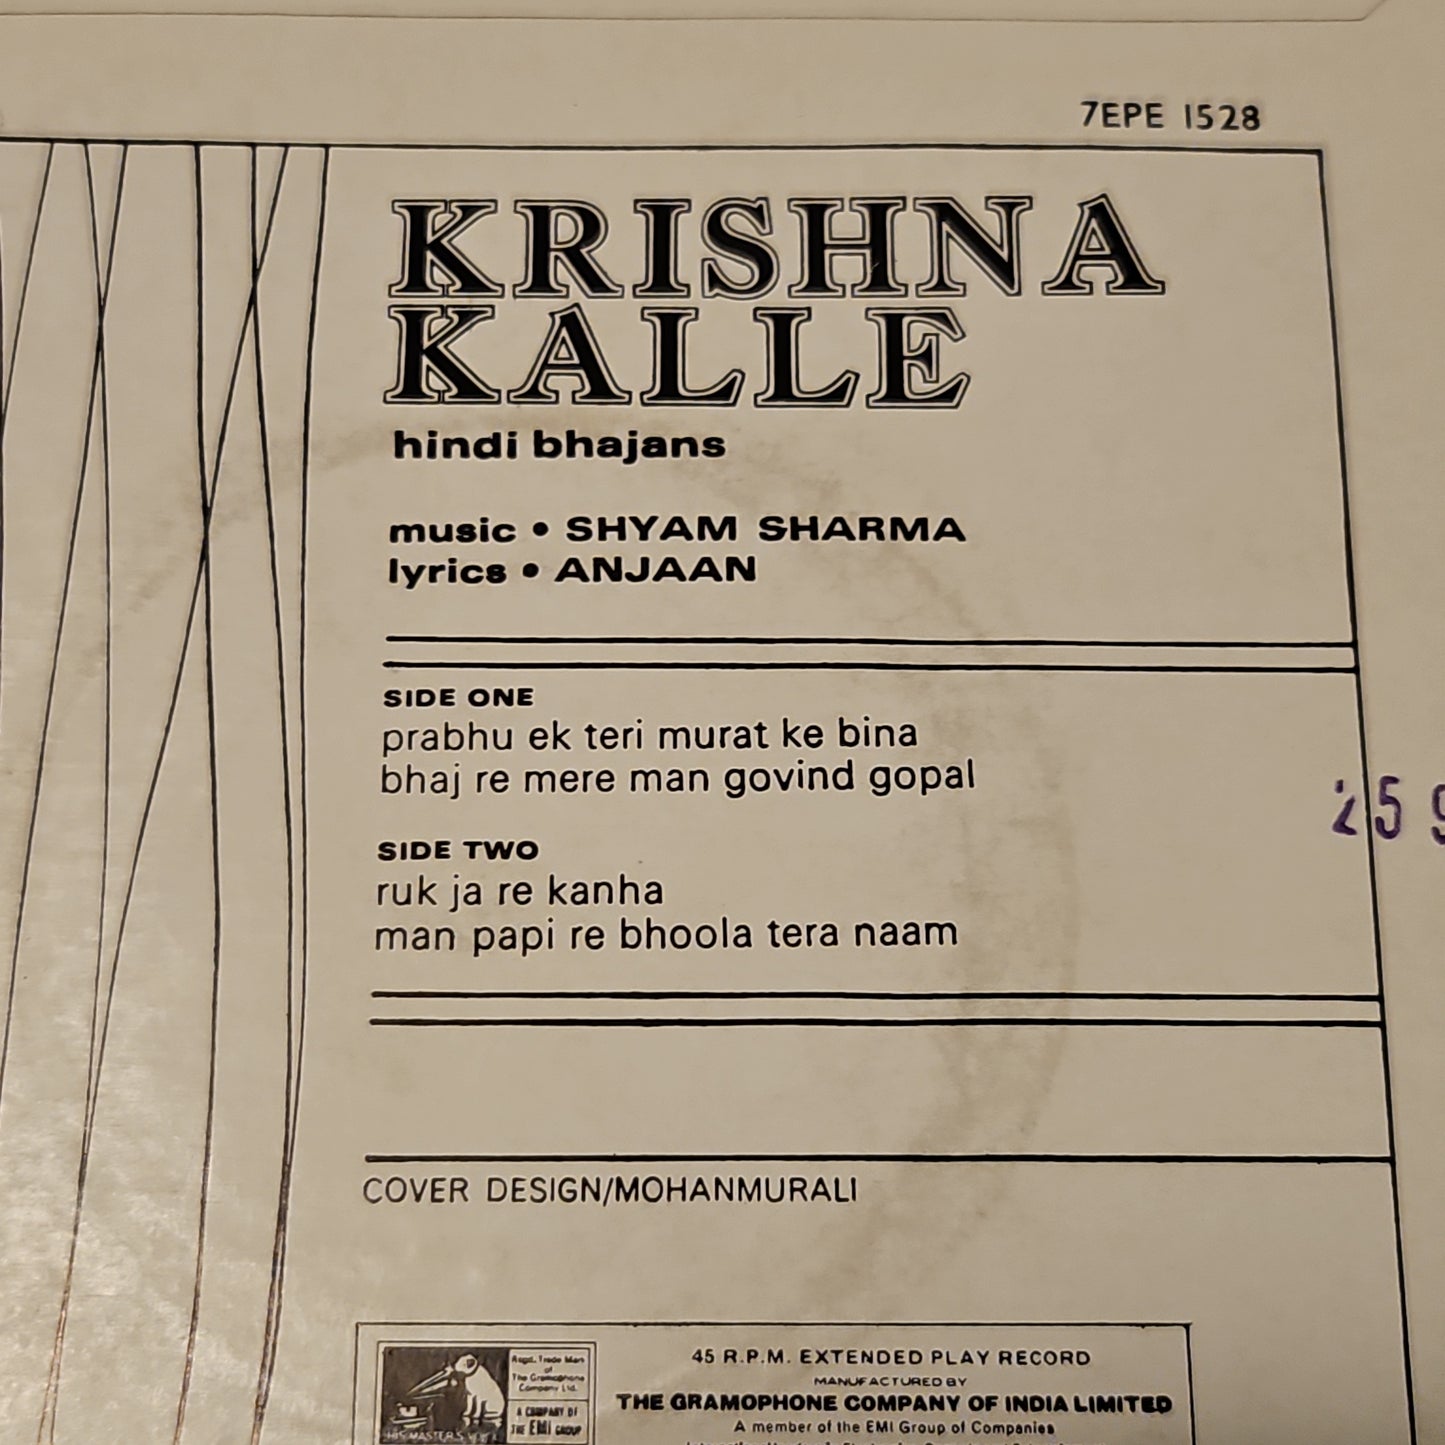 7EPE 1528
KRISHNA
KALLE
hindi bhajans
music • SHYAM SHARMA
lyrics • ANJAAN
SIDE ONE
prabhu ek teri murat ke bina
bhaj re mere man govind gopal
25 9
SIDE TWO
ruk ja re kanha
man papi re bhoola tera naam
COVER DESIGN/MOHANMURALI
Regd. Trade Mark
of
The Gramophone
Company Ltd.
A COMPANY OF
THE EMI GROUP
HIS MASTER'S VOICE
45 R.P.M. EXTENDED PLAY RECORD
MANUFACTURED BY
THE GRAMOPHONE COMPANY OF INDIA LIMITED
A member of the EMI Group of Companies